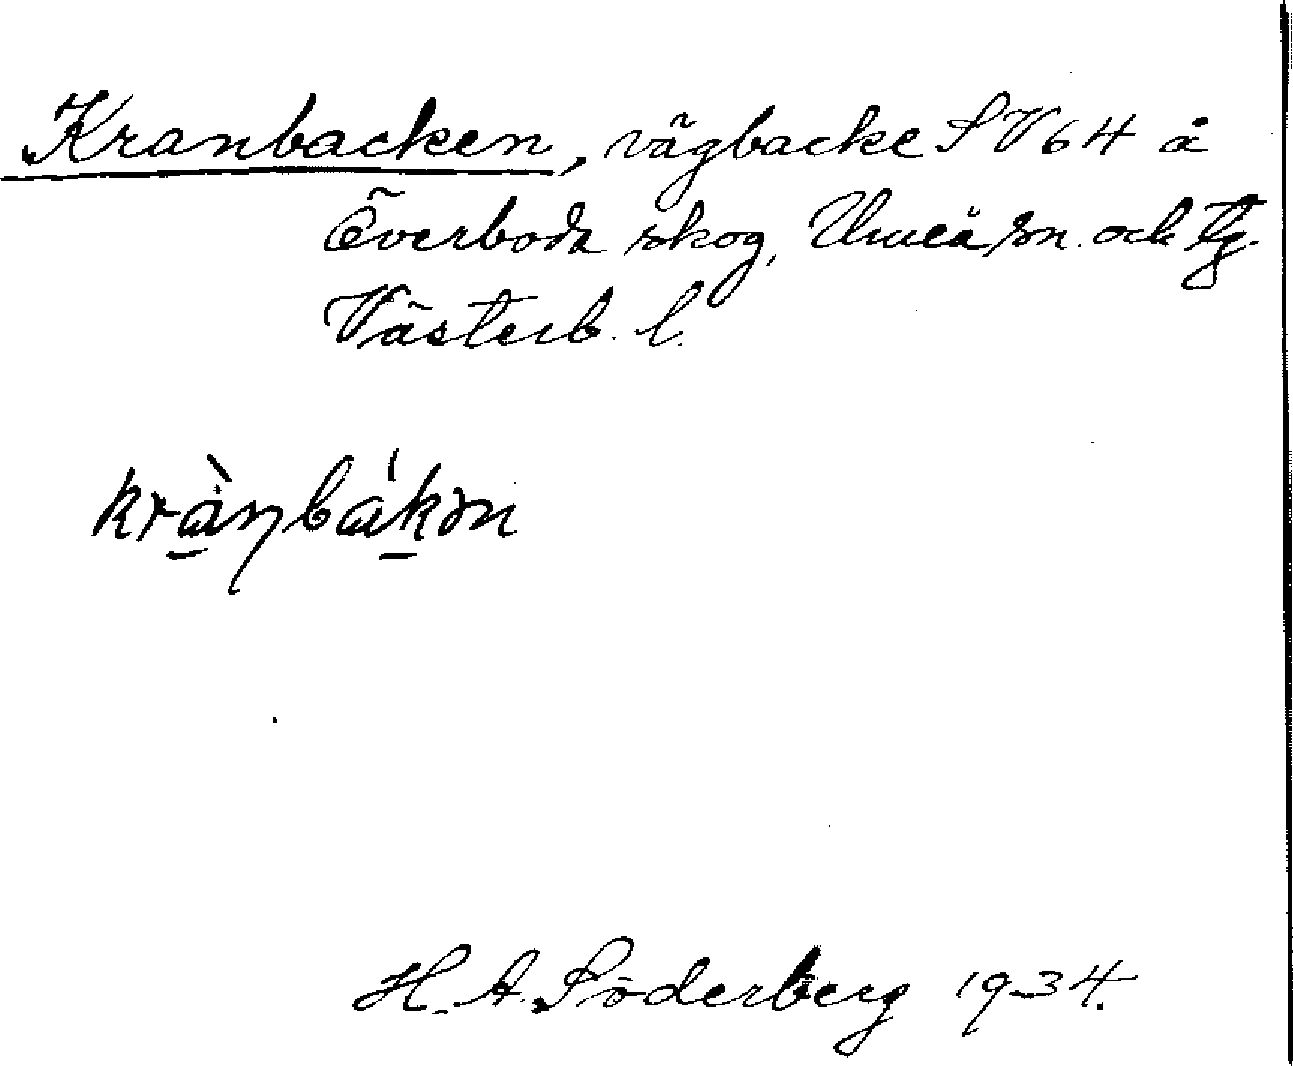 Kranbacken, vägbacke SV64 å
Överboda skog, Umeå sn. och tg.
Västerb. l.
kràṇbákən
H. A. Söderberg 1934.